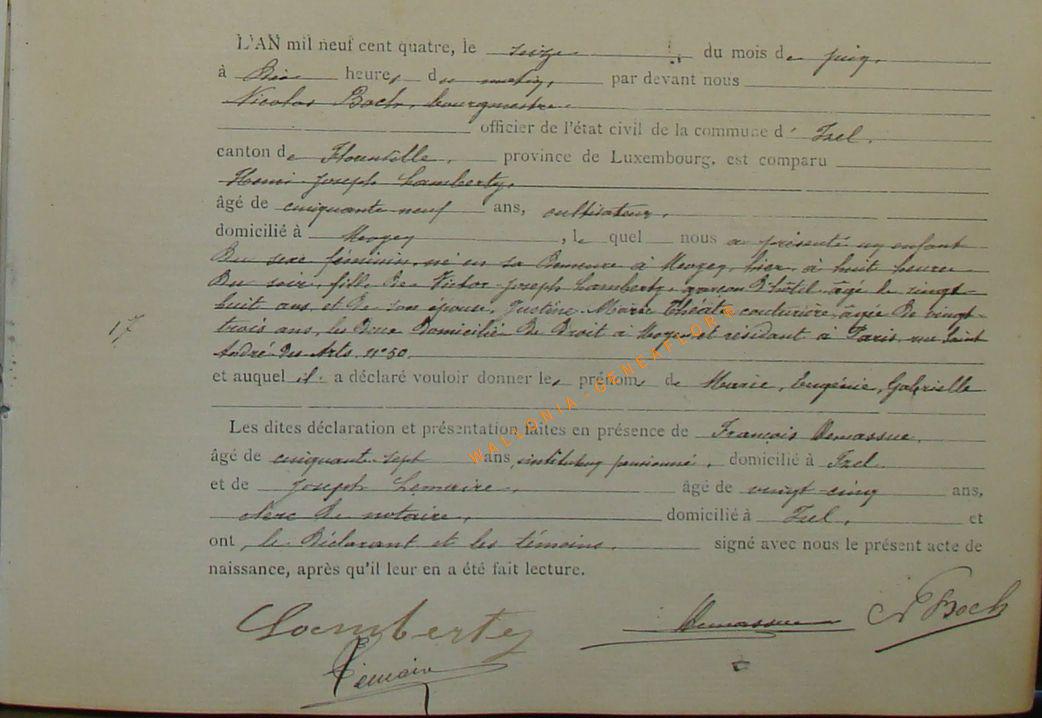 L'AN mil neuf cent quatre, le seize du mois de juin,
à Dix heures du matin, par devant nous
Nicolas Boch, bourgmestre
officier de l'état civil de la commune d' Izel,
canton de Florenville, province de Luxembourg, est comparu
Henri Joseph Lamberty,
âgé de cinquante neuf ans, cultivateur,
domicilié à Moyen, le quel nous a présenté un enfant
Du sexe féminin, né en sa Demeure à Moyen, hier, à huit heures
Du soir, fille De Victor Joseph Lamberty, garçon d'hôtel, âgé de vingt
huit ans, et De son épouse, Justine Marie Théâte couturière, âgée De vingt
17
trois ans, les Deux Domicilié De Droit à Moyen et résidant à Paris, rue Saint
André Des Arts, n° 50.
et auquel il a déclaré vouloir donner les prénoms de Marie, Eugénie, Gabrielle
Les dites déclaration et présentation faites en présence de François Demassue,
âgé de cinquante sept ans, instituteur pensionné, domicilié à Izel
et de Joseph Lemaire, âgé de vingt-cinq ans,
clerc De notaire, domicilié à Izel, et
ont, le Déclarant et les témoins, signé avec nous le présent acte de
naissance, après qu'il leur en a été fait lecture.
Lamberty
Demassue
N Boch
Lemaire
WALLONIA-GENEAFLORE